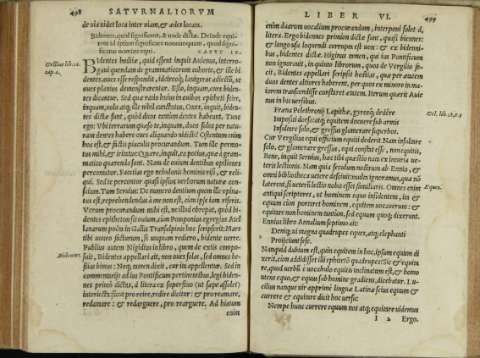 498 SATVRNALIORVM
de via videt loca inter viam, & ades locavi.
Bidentes, quid significent, & unde dictæ. De inde equi-
tem id ipsum significare nonnunquam, quod signi-
Bidentes hostiæ, quid essent inquit Avienus, interro-
gavi quendam de grammaticorum cohorte, & ille bi-
dentes, oves esse respondit, idcircoq́; lanicij
oves planius demonstrarentur. Esto, inquam, oves bidentes
dicantur. Sed quæ ratio huius in ovibus epitheti scire,
inquam, volo. atq; ille nihil cunctatus, Oves, inquit, biden-
tes dictæ sunt, quòd duos tantùm dentes habeant. Tunc
ego: Vbi terrarum quæso te, inquam, duos solos per natu-
ram dentes habere oves aliquando vidisti? Ostentum enim
hoc est & factis piaculis procurandum. Tum ille permo-
tus mihi, & irritatus: Quære, inquit, ea potius, quæ à gram-
matico quærenda sunt. Nam de ovium dentibus opiliones
percontator. Facetias ego nebulonis hominis risi, & reli-
qui. Sed te percontor quasi ipsius verborum naturæ conscium.
Tum Servius: De numero dentium quem ille opina-
tus est, reprehendendus à me non est, cum ipse iam riseris.
Verum procurandum mihi est, ne illud obrepat, quòd bi-
dentes epitheton sit ovium, cum Pomponius egregius Atel-
lanarum poëta in Gallis Transalpinis hoc scripserit: Mars
tibi voveo facturum, si unquam redierit, bidente verre.
Publius autem Nigidius in libro, quem de extis compo-
suit, Bidentes appellari ait, non oves solas, sed omnes be-
stias bimas: Neq; tamen dixit, cur ita appellentur. Sed in
commentarijs ad ius Pontificium pertinentibus legi biden-
nes primò dictas, d litera ex superfluo (ut sæpe assolet)
interiecta: sic pro reire, redire dicitur: & pro reamare,
redamare: & redarguere, pro rearguere. Ad hiatum
enim
LIBER VI. 499
enim duarum vocalium procurandum, interponi solet d,
litera. Ergo bidennes primùm dictæ sunt, quasi biennes:
& longo usu loquendi corrupta est vox: & ex bidenni-
bus, bidentes dictæ. Higinus tamen, qui ius Pontificium
non ignoravit, in quinto librorum, quos de Vergilio fe-
cit, Bidentes appellari scripsit hostias, quæ per ætatem
duos dentes altiores haberent, per quos ex minore in ma-
iorem transcendisse constaret ætatem. Iterum quærit Avie-
nus in his versibus.
Frena Pelethronij Lapithæ, gyrosq́; dedêre
Impositi dorso: atq; equitem docuere sub armis
Insultare solo, & gressus glomerare superbos.
Cur Vergilius equi officium equiti dederit. Nam insultare
solo, & glomerare gressus, equi constat esse, non equitis.
Bene, inquit Servius, hæc tibi quæstio nata ex incuria ve-
teris lectionis. Nam quia seculum nostrum ab Ennio, &
omni bibliotheca vetere descivit: multa ignoramus, quæ non
laterent, si veterum lectio nobis esset familiaris. Omnes enim
antiqui scriptores, ut hominem equo insidentem, ita &
equum cum portaret hominem, equitem vocaverunt: &
equitare non hominem tantùm, sed equum quoq; dixerunt.
Ennius libro Annalium septimo ait:
Deniq; vi magna quadrupes eques, atq; elephanti
Proijciunt sese.
Nunquid dubium est, quin equitem in hoc, ipsum equum di-
xerit, cum addidisset illi epitheton quadrupes? Sic & equita-
re, quod verbū è vocabulo equitis inclinatum est, & homo
utens equo, & equus sub homine gradiens, dicebatur. Lu-
cilius nanque vir apprimè linguæ Latinæ scius equum &
currere & equitare dicit hoc versu:
Nempe hunc currere equum nos atq; equitare videmus
I 2 Ergo.